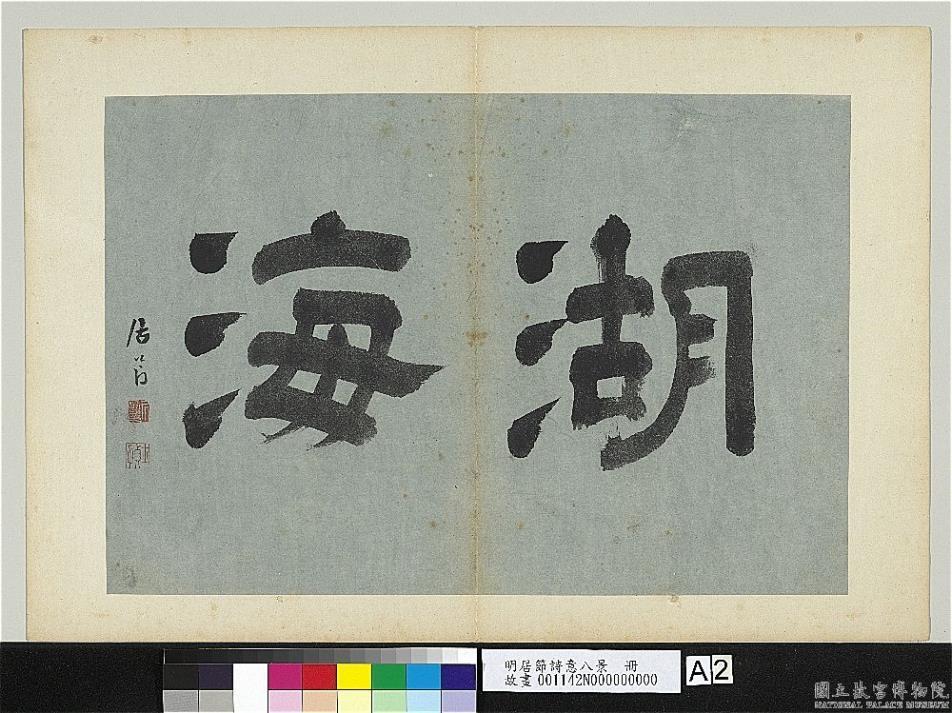 湖海
居節
明居節詩意八景 冊
故畫 001142N000000000
A2
國立故宮博物院
NATIONAL PALACE MUSEUM